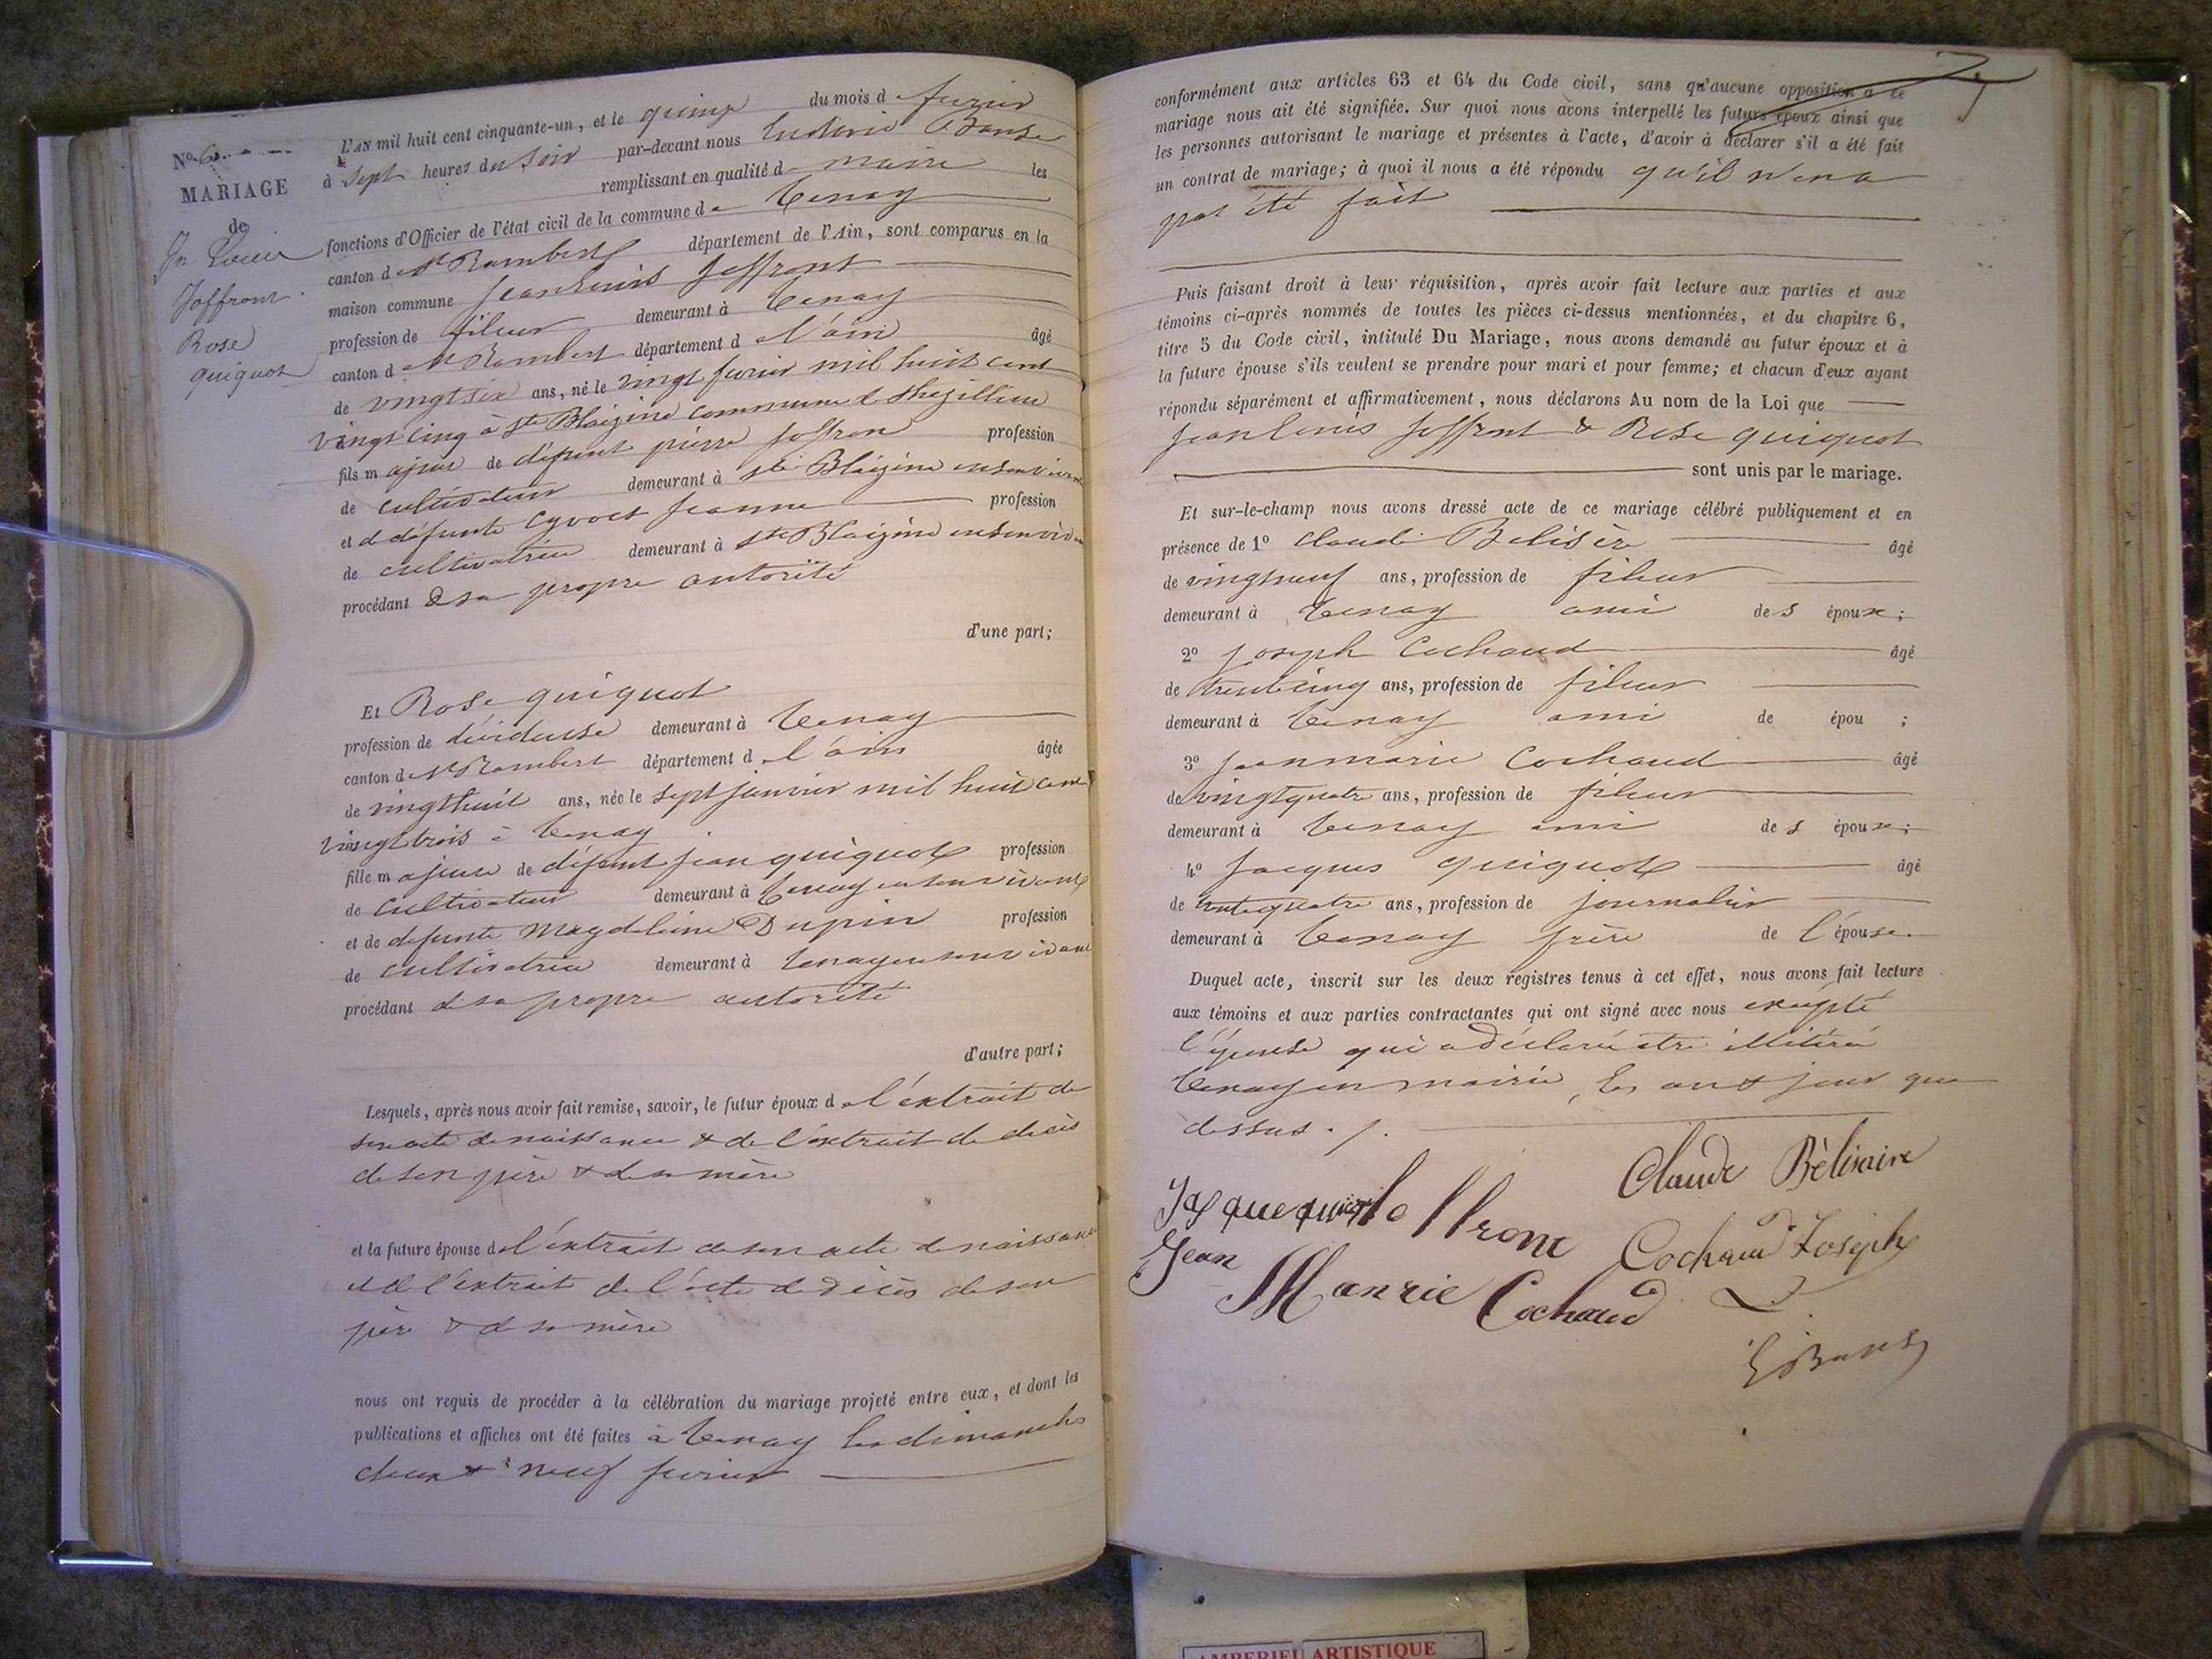 No 6
MARIAGE
de
Jn Louis
Joffront
Rose
quiquot
L'AN mil huit cent cinquante-un, et le quinze du mois de fevrier
à sept heures du soir par-devant nous
remplissant en qualité de maire les
fonctions d'Officier de l'état civil de la commune de Tenay
canton de St Rambert département de l'Ain, sont comparus en la
maison commune Jean Louis Joffront
profession de fileur demeurant à Tenay
canton de St Rambert département de l'ain âgé
de vingt six ans, né le vingt fevrier mil huit cent
vingt cinq à Ste Blaizine commune de
fils majeur de défunt pierre Joffron profession
de cultivateur demeurant à Ste Blaizine en son vivant
et de défunte Jeanne profession
de cultivatrice demeurant à Ste Blaizine en son vivan
procédant de sa propre autorité
d'une part;
Et Rose quiquot
profession de dévideuse demeurant à Tenay
canton de St Rambert département de l'ain âgée
de vingt huit ans, née le sept janvier mil huit cent
vingt trois à Tenay
fille majeure de défunt jean quiquot profession
de cultivateur demeurant à Tenay en son vivant
et de defunte Magdeleine Dupin profession
de cultivatrice demeurant à Tenay en son vivant
procédant de sa propre autorité
d'autre part;
Lesquels, après nous avoir fait remise, savoir, le futur époux de l'extrait de
son acte de naissance & de l'extrait de décès
de son père & de sa mère
et la future épouse de l'extrait de son acte de naissance
et de l'extrait de l'acte de décès de son
père & de sa mère
nous ont requis de procéder à la célébration du mariage projeté entre eux, et dont les
publications et affiches ont été faites à Tenay les dimanches
deux & neuf fevrier
conformément aux articles 63 et 64 du Code civil, sans qu'aucune opposition à ce
mariage nous ait été signifiée. Sur quoi nous avons interpellé les futurs époux ainsi que
les personnes autorisant le mariage et présentes à l'acte, d'avoir à déclarer s'il a été fait
un contrat de mariage; à quoi il nous a été répondu qu'il n'en a
pas été fait
Puis faisant droit à leur réquisition, après avoir fait lecture aux parties et aux
témoins ci-après nommés de toutes les pièces ci-dessus mentionnées, et du chapitre 6,
titre 5 du Code civil, intitulé Du Mariage, nous avons demandé au futur époux et à
la future épouse s'ils veulent se prendre pour mari et pour femme; et chacun d'eux ayant
répondu séparément et affirmativement, nous déclarons Au nom de la Loi que
Jean Louis Joffront & Rose quiquot
sont unis par le mariage.
Et sur-le-champ nous avons dressé acte de ce mariage célébré publiquement et en
présence de 1o Claude Belisère âgé
de vingt neuf ans, profession de fileur
demeurant à Tenay ami des époux;
2o Joseph Cochaud âgé
de trente cinq ans, profession de fileur
demeurant à Tenay ami de épou ;
3o Jean marie Cochaud âgé
de vingt quatre ans, profession de fileur
demeurant à Tenay ami des époux;
4o Jacques quiquot âgé
de trente quatre ans, profession de journalier
demeurant à Tenay frère de l'épouse.
Duquel acte, inscrit sur les deux registres tenus à cet effet, nous avons fait lecture
aux témoins et aux parties contractantes qui ont signé avec nous excepté
l'épouse qui a déclaré être illitéré
Tenay en mairie, les an & jour que
dessus ./.
Claude Bèlisaire
Jasque
Joffront
Cochaud Joseph
Jean
Manrie Cochaud
AMBERIEU ARTISTIQUE